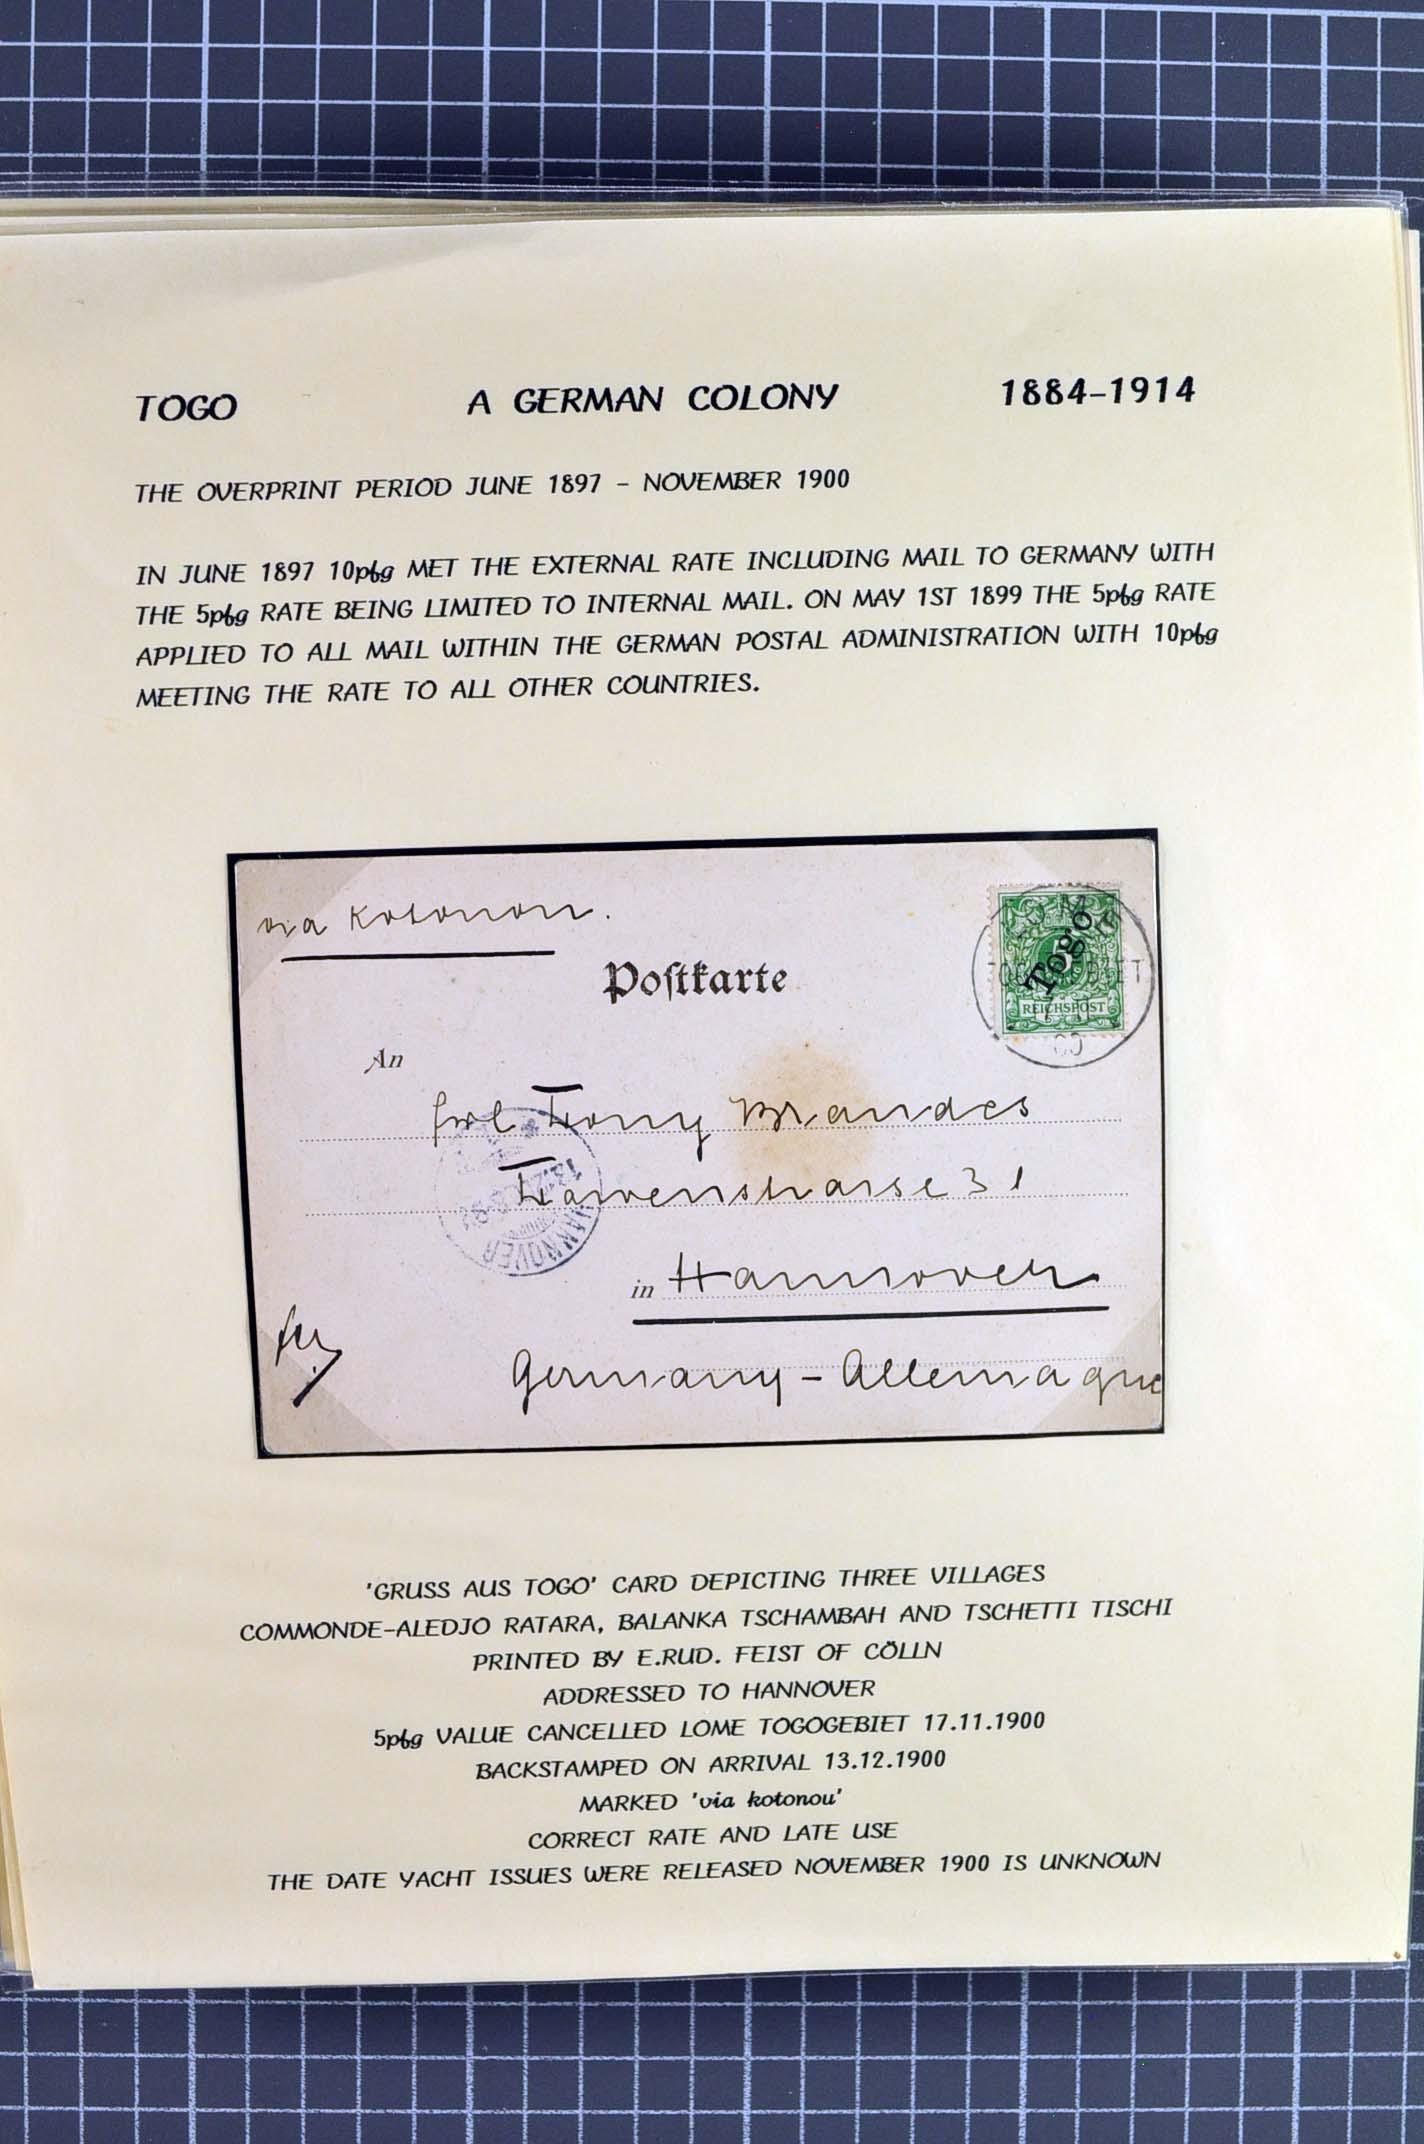 TOGO A GERMAN COLONY 1884-1914
THE OVERPRINT PERIOD JUNE 1897 - NOVEMBER 1900
IN JUNE 1897 10pfg MET THE EXTERNAL RATE INCLUDING MAIL TO GERMANY WITH
THE 5pfg RATE BEING LIMITED TO INTERNAL MAIL. ON MAY 1ST 1899 THE 5pfg RATE
APPLIED TO ALL MAIL WITHIN THE GERMAN POSTAL ADMINISTRATION WITH 10pfg
MEETING THE RATE TO ALL OTHER COUNTRIES.
via Kotonou.
Postkarte
Togo
5
REICHSPOST
An
Frl Tony Brandes
31
HANNOVER
in Hannover
Germany - Allemagne
'GRUSS AUS TOGO' CARD DEPICTING THREE VILLAGES
COMMONDE-ALEDJO RATARA, BALANKA TSCHAMBAH AND TSCHETTI TISCHI
PRINTED BY E.RUD. FEIST OF CÖLLN
ADDRESSED TO HANNOVER
5pfg VALUE CANCELLED LOME TOGOGEBIET 17.11.1900
BACKSTAMPED ON ARRIVAL 13.12.1900
MARKED 'via kotonou'
CORRECT RATE AND LATE USE
THE DATE YACHT ISSUES WERE RELEASED NOVEMBER 1900 IS UNKNOWN